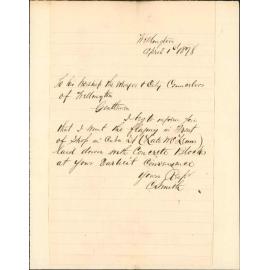 Wellington
April 1st 1898
To his Worship the Mayor & City Councilors
of Wellington
Gentlemen
I beg to inform you
that I want the Flaging in Front
of Shop in Cuba St (Late McKenna)
laid down with Concrete Blocks
at your Earliest Convenience
Yours Resp
C Smith